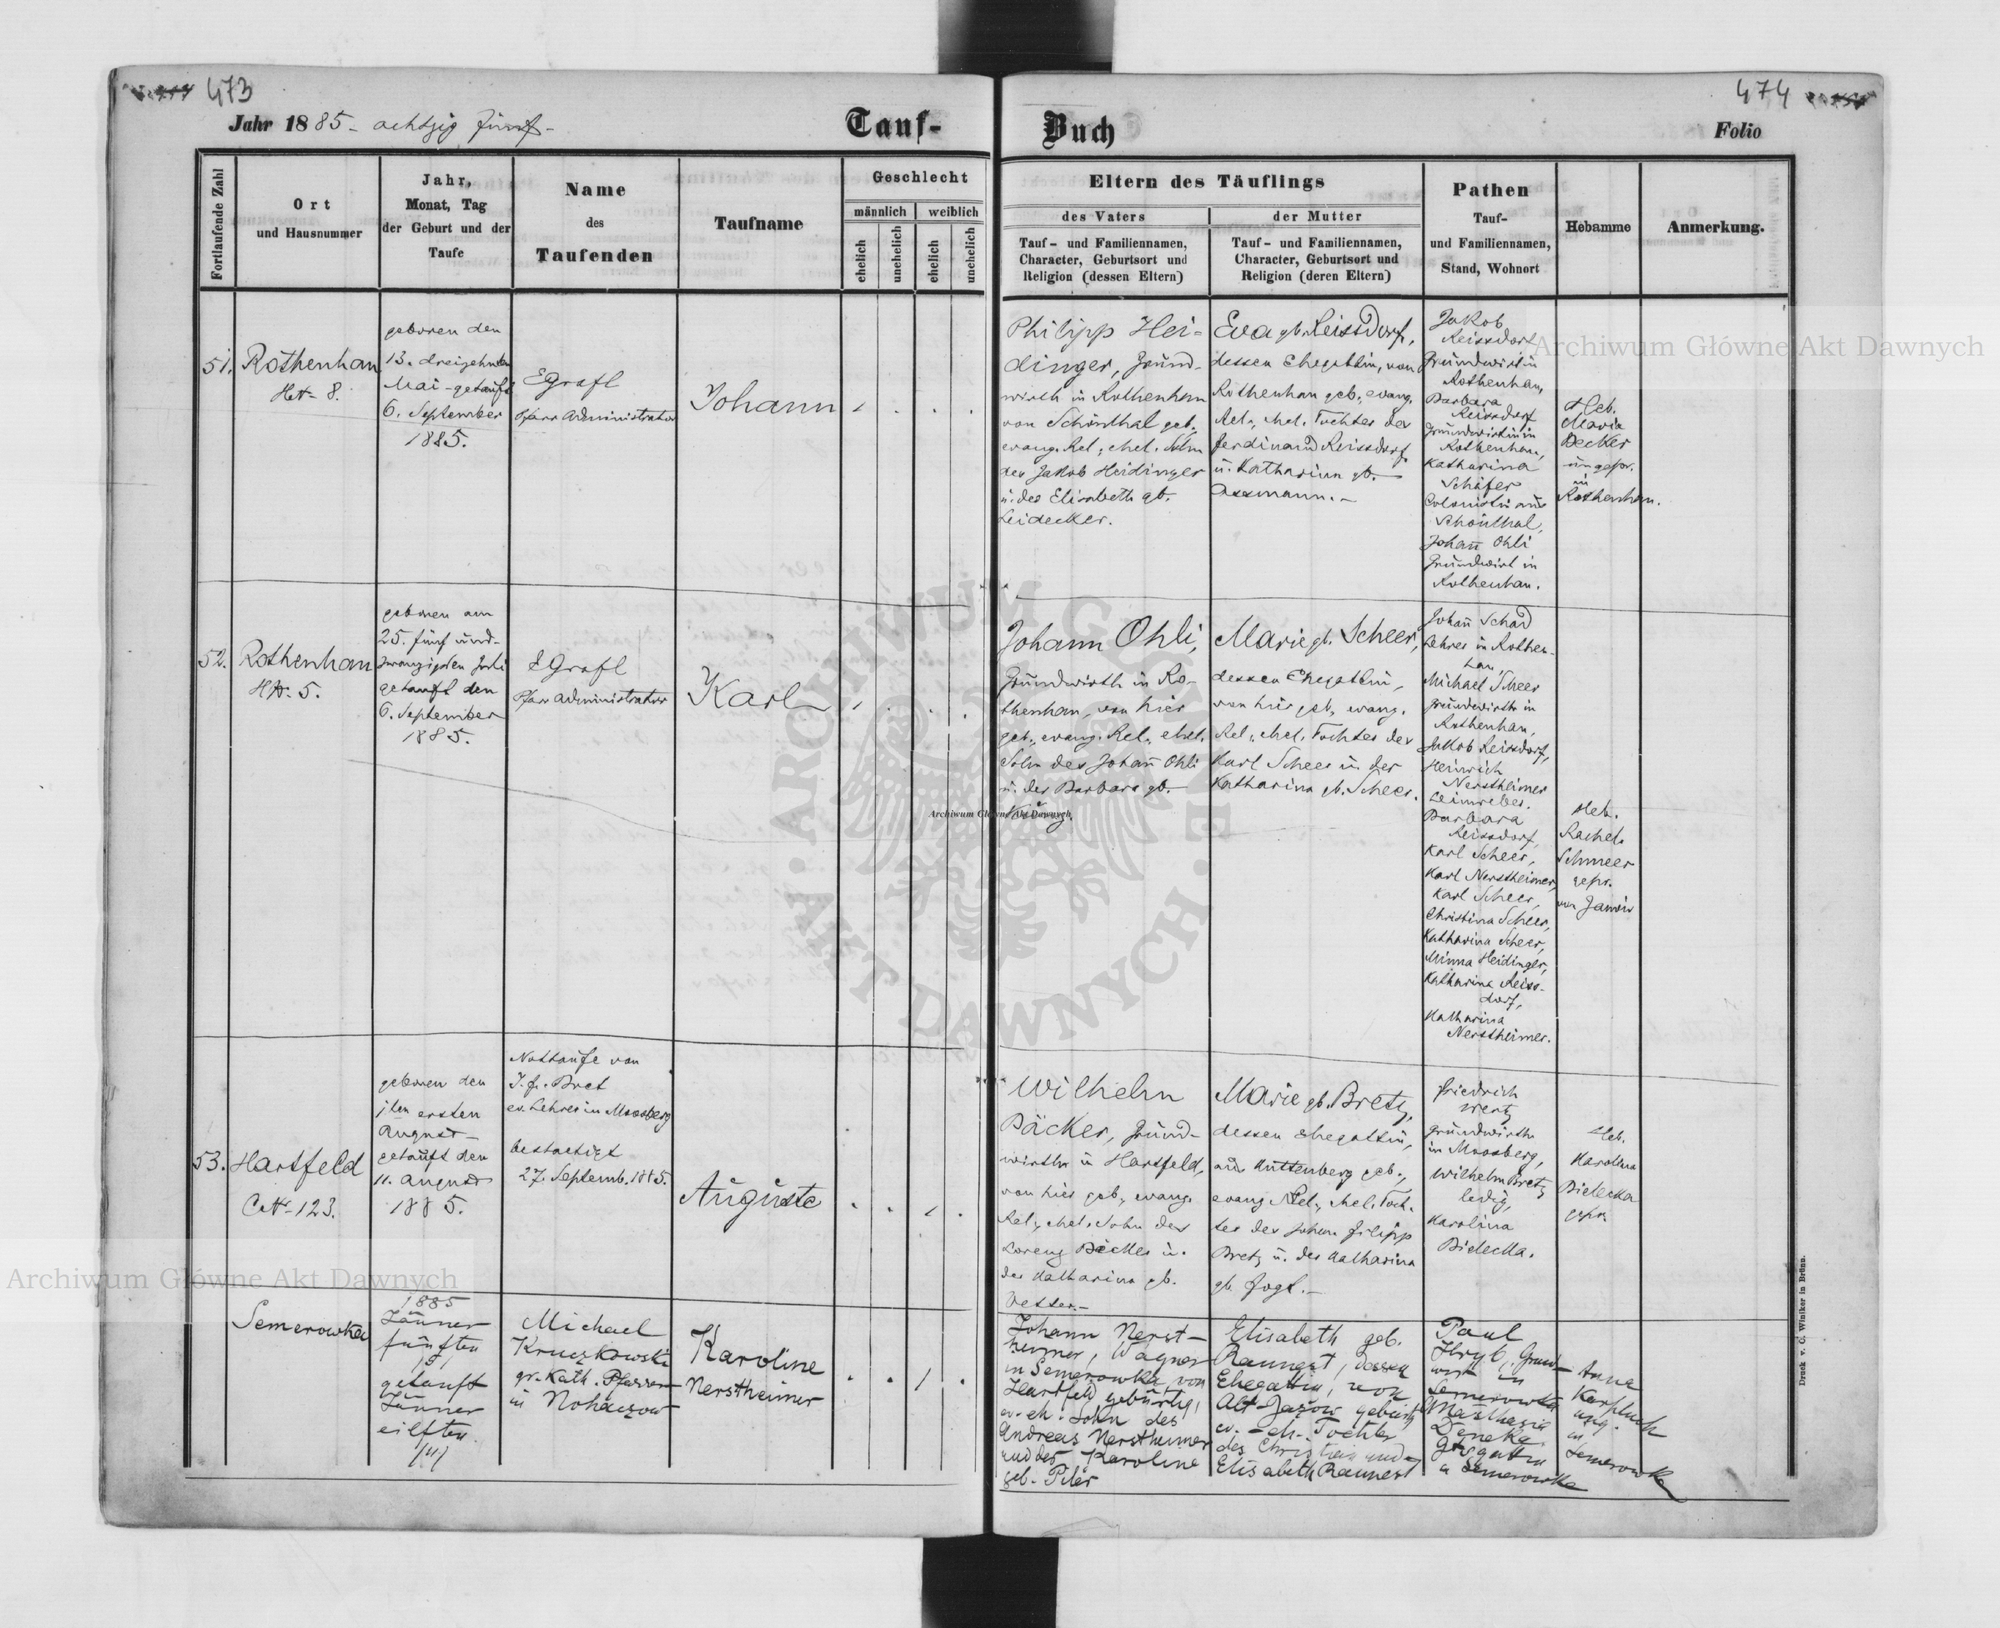 473
474
Jahr 1885 - achtzig fünf -
Tauf-
Buch
Folio
Fortlaufende Zahl
Ort
und Hausnummer
Jahr,
Monat, Tag
der Geburt und der
Taufe
Name
des
Taufenden
Taufname
Geschlecht
männlich
weiblich
ehelich
unehelich
ehelich
unehelich
Eltern des Täuflings
des Vaters
Tauf- und Familiennamen,
Character, Geburtsort und
Religion (dessen Eltern)
der Mutter
Tauf- und Familiennamen,
Character, Geburtsort und
Religion (deren Eltern)
Pathen
Tauf-
und Familiennamen,
Stand, Wohnort
Hebamme
Anmerkung.
51.
Rothenhan
HN- 8.
geboren den
13. dreizehnten
Mai - getauft
6. September
1885.
EGrafl
Pfarr Administrator
Johann
Philipp Hei-
dinger, Grund-
wirth in Rothenhan
von Schönthal geb.,
evang. Rel., ehel. Sohn
des Jakob Heidinger
u. der Elisabeth gb.
Leidecker.
Eva gb. Reissdorf,
dessen Ehegattin, von
Rothenhan geb., evang.
Rel., ehel. Tochter des
Ferdinand Reissdorf
u. Katharina gb. -
Assmann. -
Jakob
Reissdorf
Grundwirt in
Rothenhan,
Barbara
Reissdorf
Grundwirtin in
Rothenhan,
Katharina
Schäfer
Colonistin aus
Schönthal,
Johañ Ohli
Grundwirt in
Rothenhan.
Heb.
Maria
Decker
ungepr.
in
Rothenhan.
52.
Rothenhan
HN. 5.
geboren am
25. fünf und-
zwanzigsten Juli
getauft den
6. September
1885.
EGrafl
Pfarr Administrator
Karl
Johann Ohli,
Grundwirth in Ro-
thenhan, von hier
geb., evang. Rel., ehel.
Sohn des Johañ Ohli
u. der Barbara gb. -
König.
Marie gb. Scheer,
dessen Ehegattin,
von hier geb., evang.
Rel., ehel. Tochter des
Karl Scheer u. der
Katharina gb. Scheer.
Johañ Schad
Lehrer in Rothen-
han,
Michael Scheer
Grundwirth in
Rothenhan,
Jakob Reissdorf,
Heinrich
Nerstheimer
Barbara
Reissdorf,
Karl Scheer,
Karl Nerstheimer,
Karl Scheer,
Christina Scheer,
Katharina Scheer,
Minna Heidinger,
Katharina Reiss-
dorf,
Katharina
Nerstheimer.
Heb.
Rachel
Schmeer
gepr.
von Janów
53.
Hartfeld
CN- 123.
geboren den
1ten ersten
August -
getauft den
11. August
1885.
Nothtaufe von
J. F. Bret
ev. Lehrer in Moosberg
bestaetigt
27. Septemb. 1885.
Auguste
Wilhelm
Bäcker, Grund-
wirth in Hartfeld,
von hier geb., evang.
Rel., ehel. Sohn des
Lorenz Bäcker u.
der Katharina gb.
Vetter. -
Marie gb. Bretz,
dessen Ehegattin,
aus Kuttenberg geb.,
evang. Rel., ehel. Toch-
ter des Johan Filipp
Bretz u. der Katharina
gb. Fogt. -
Friedrich
Mertz
Grundwirth
in Moosberg,
Wilhelm Bretz
ledig,
Karolina
Bielecka.
Heb.
Karolina
Bielecka
gepr.
Semerowka
1885
Jänner
fünften
/5/
getauft
Jänner
eilften
/11/
Michael
Kruczkowski
gr. Kath. Pfarrer
in Nohaczow
Karoline
Nerstheimer
Johann Nerst-
heimer, Wagner
in Semerowka, von
Hartfeld gebürtig,
ev. eh. Sohn des
Andreas Nerstheimer
und der Karoline
geb. Piler
Elisabeth geb.
Raungst, dessen
Ehegattin, von
Alt-Jazow gebürtig
ev. - eh. Tochter
des Christian und
Elisabeth Raunest
Paul
Hryb, Grund-
wirt in
Semerowka
Deneka
in Semerowka
Anna
ung.
in
Semerowka
Druck v. C. Winiker in Brünn.
Archiwum Główne Akt Dawnych
Archiwum Główne Akt Dawnych
Archiwum Główne Akt Dawnych
ARCHIWUM GŁÓWNE AKT DAWNYCH